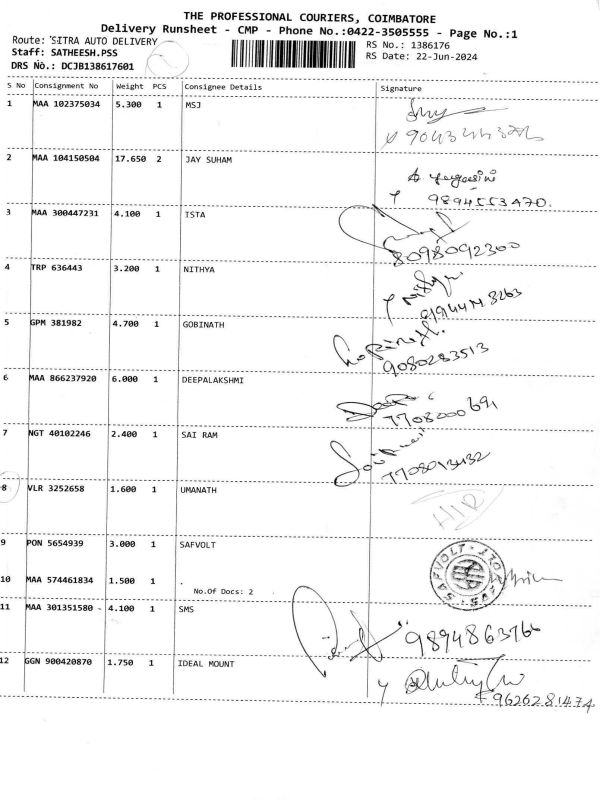 THE PROFESSIONAL COURIERS, COIMBATORE
Delivery Runsheet - CMP - Phone No.:0422-3505555 - Page No.:1
Route: SITRA AUTO DELIVERY
RS No.: 1386176
Staff: SATHEESH.PSS
RS Date: 22-Jun-2024
DRS No.: DCJB138617601
S No Consignment No Weight PCS Consignee Details Signature
1 MAA 102375034 5.300 1 MSJ
2 MAA 104150504 17.650 2 JAY SUHAM
9894553470.
3 MAA 300447231 4.100 1 ISTA
8098092300
4 TRP 636443 3.200 1 NITHYA
5 GPM 381982 4.700 1 GOBINATH
9080283513
6 MAA 866237920 6.000 1 DEEPALAKSHMI
7708000691
7 NGT 40102246 2.400 1 SAI RAM
8 VLR 3252658 1.600 1 UMANATH
9 PON 5654939 3.000 1 SAFVOLT
SAFVOLT
10 MAA 574461834 1.500 1
No.Of Docs: 2
11 MAA 301351580 4.100 1 SMS
9894863766
12 GGN 900420870 1.750 1 IDEAL MOUNT
9626281474